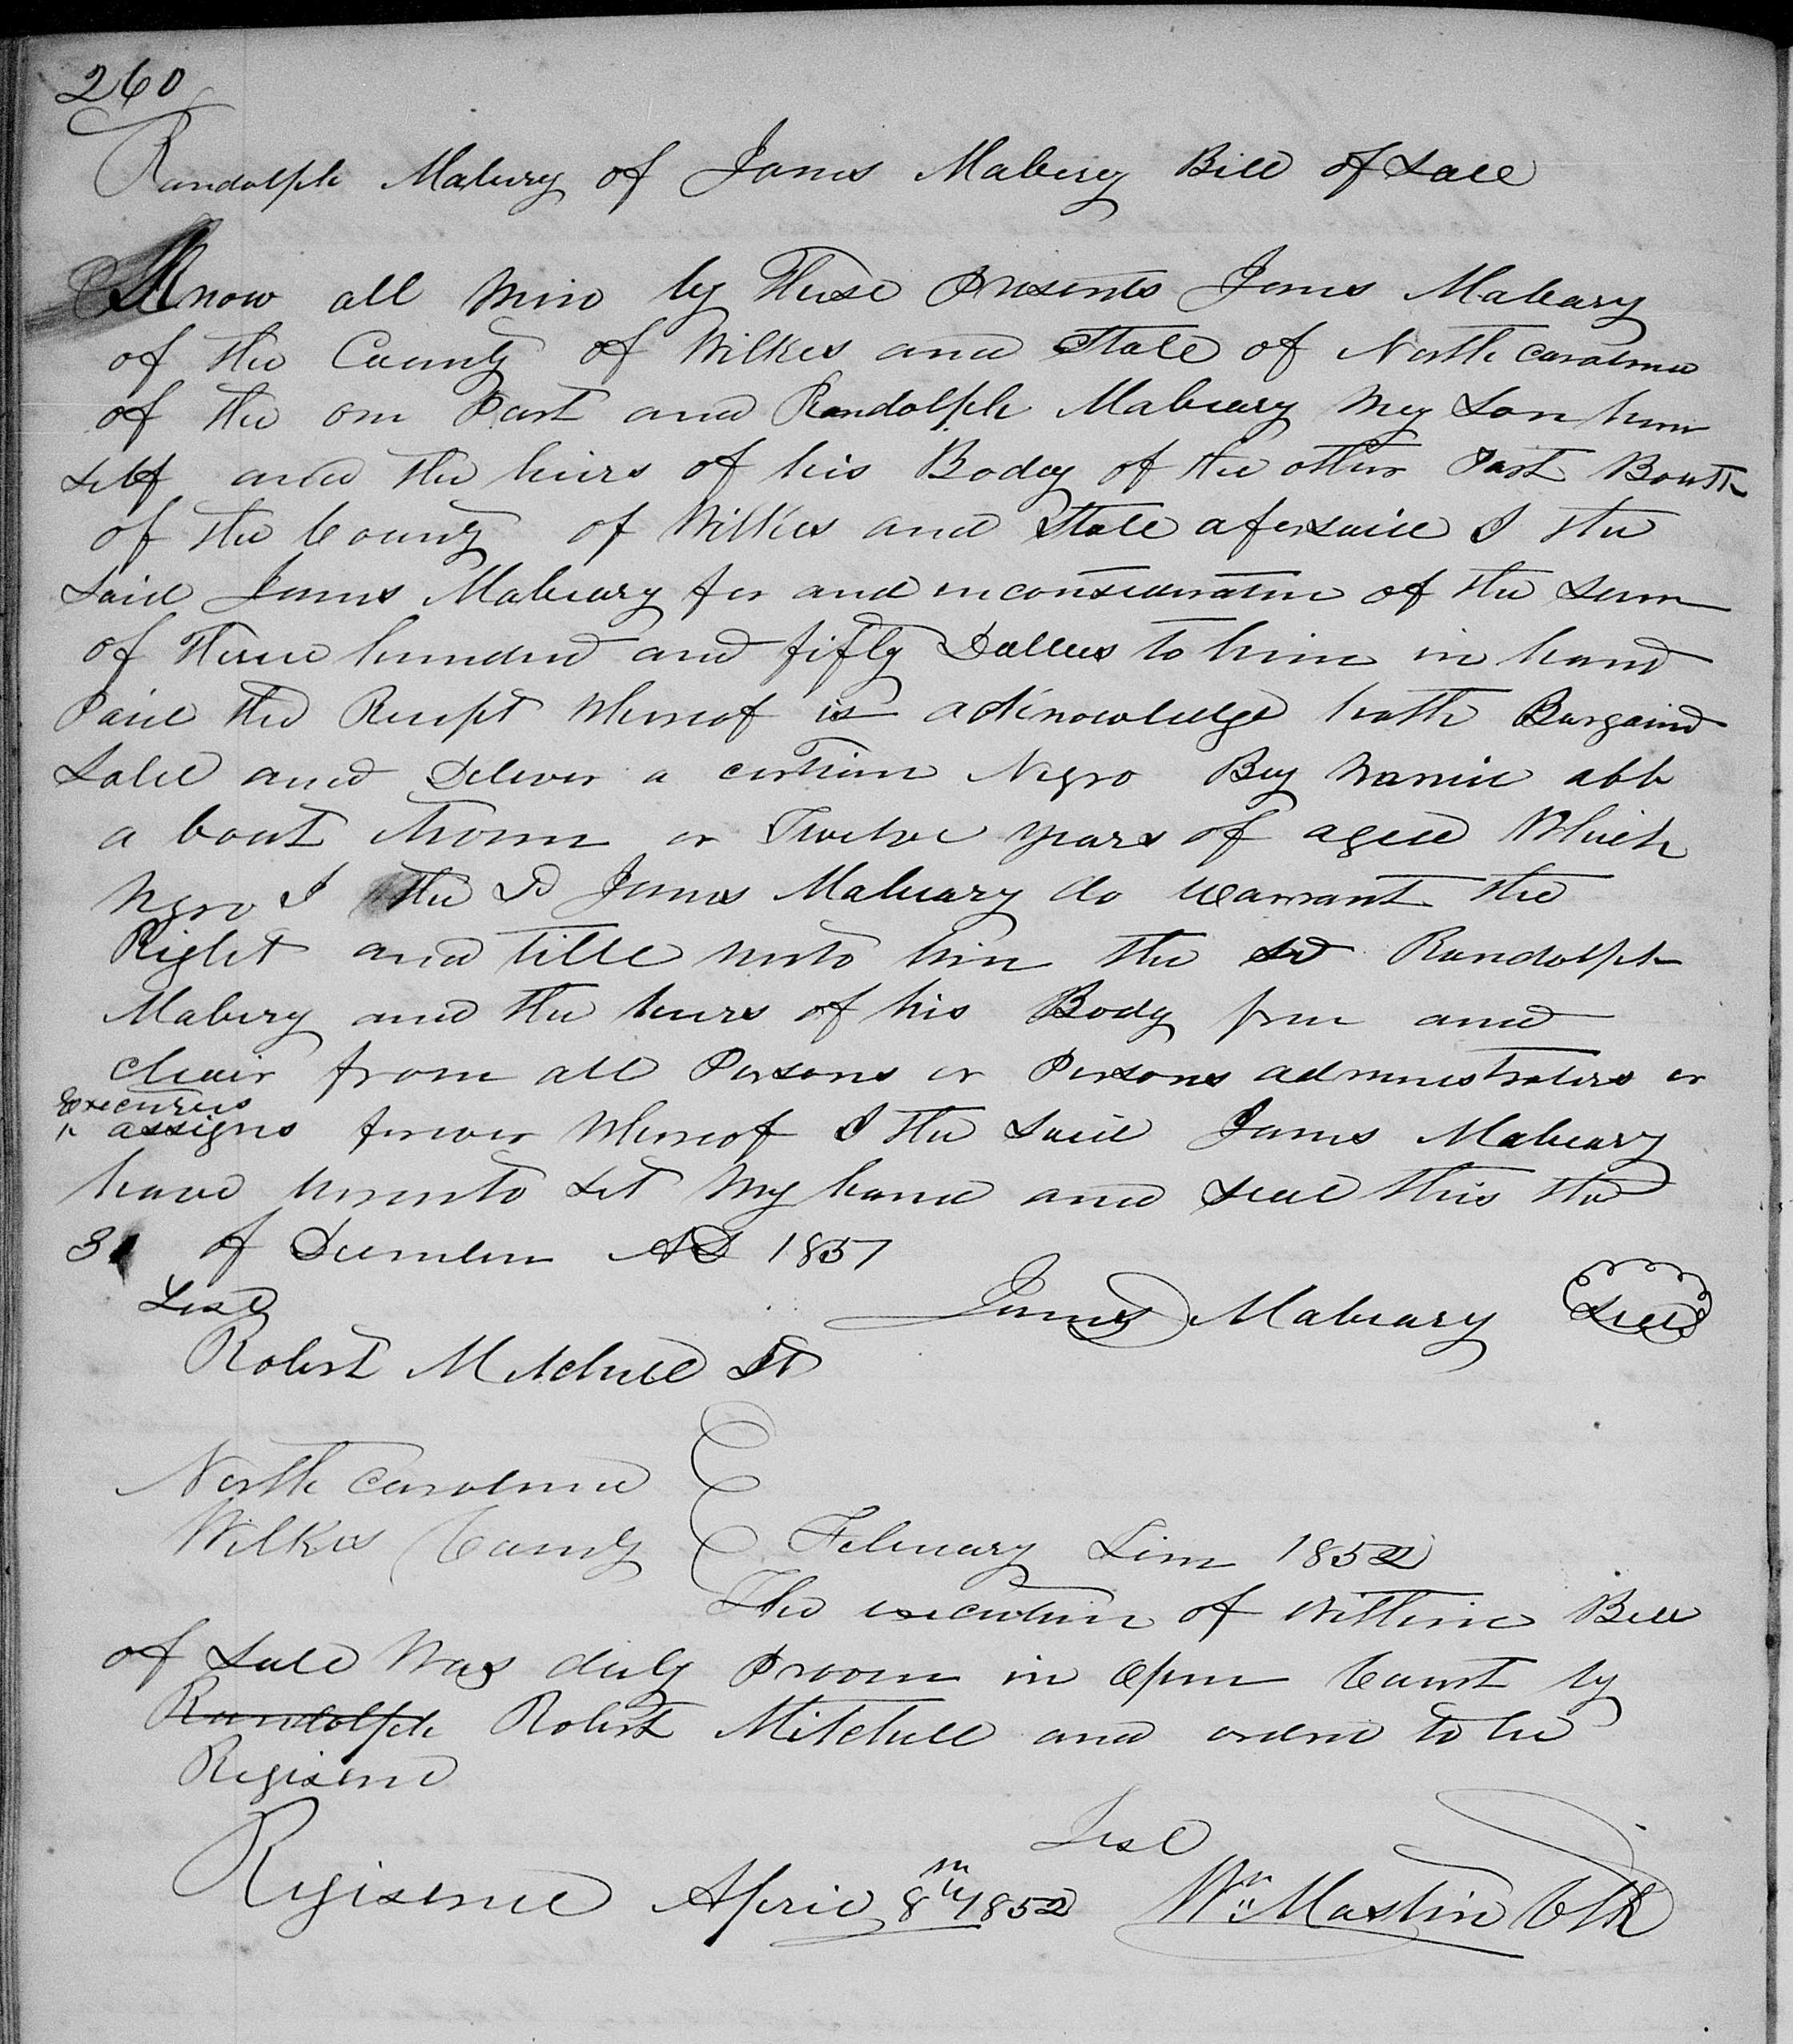 260
Randolph Mabery of James Mabery Bill of Sale
Know all men by These Presents James Mabeary
of the County of Wilkes and State of North Carolina
of the one Part and Randolph Mabeary My Son him
self and the heirs of his Body of the other Part Bouth
of the County of Wilkes and State afersaid I the
Said James Mabeary for and inconsideration of the Sum
of Three hundred and fifty Dallers to him in hand
Paid the Receipt Whereof is acknowledge hath Bargaind
Sold and Deliver a certain Negro Boy Namid abb
a bout or Twelve years of aged Which
Negro I the Sd James Mabeary do warrant the
Right and title unto him the Sd Randolph
Mabery and the heirs of his Body free and
clear from all Persons or Persons administrators or
Executers
assigns forever Whereof I the Said James Mabeary
have hereunto Set My hand and Seal this the
31 of December AD 1851
Test
James Mabeary Seal
Robert Mitchell
North Carolina
Wilkes County February Term 1852
The execution of Within Bill
of Sale Was duly Prooven in Open Court by
Randolph Robert Mitchell and orderd to be
Registerd
Test
Registered April 8th 1852 Wm Mastin Clk